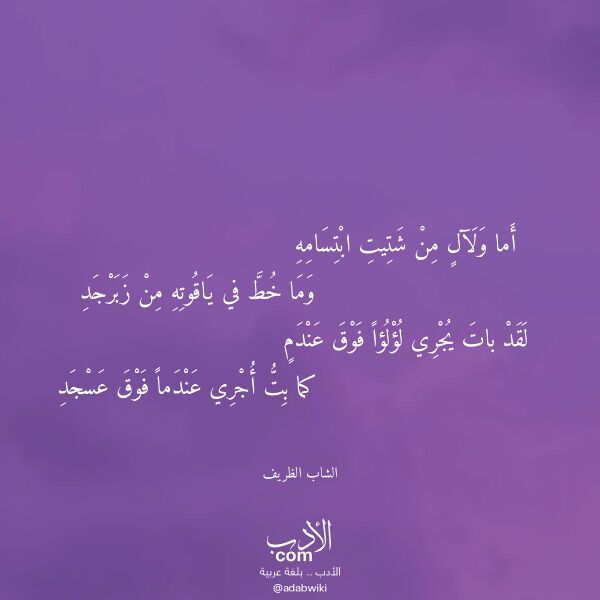 أَما وَلَآلٍ مِنْ شَتِيتِ ابْتِسَامِهِ
وَمَا خُطَّ في يَاقُوتِهِ مِنْ زَبَرْجَدِ
لَقَدْ باتَ يُجْرِي لُؤْلُؤاً فَوْقَ عَنْدَمٍ
كما بِتُّ أُجْرِي عَنْدَماً فَوْقَ عَسْجَدِ
الشاب الظريف
الأدب
com
الأدب .. بلغة عربية
@adabwiki